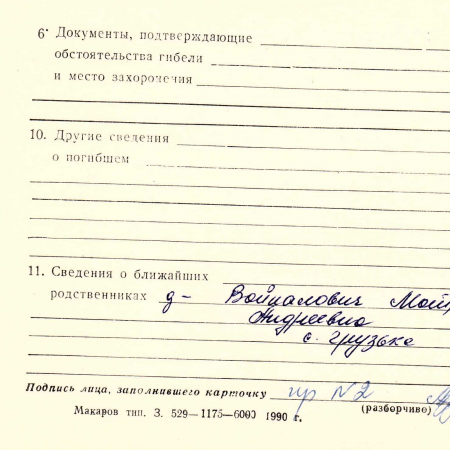 6· Документы, подтверждающие
обстоятельства гибели
и место захоронения
10. Другие сведения
о погибшем
11. Сведения о ближайших
родственниках д- Войцалович Мот
Андреевна
с. Грузька
Подпись лица, заполнившего карточку гр N2
Макаров тип. З. 529—1175—6000 1990 г. (разборчиво)